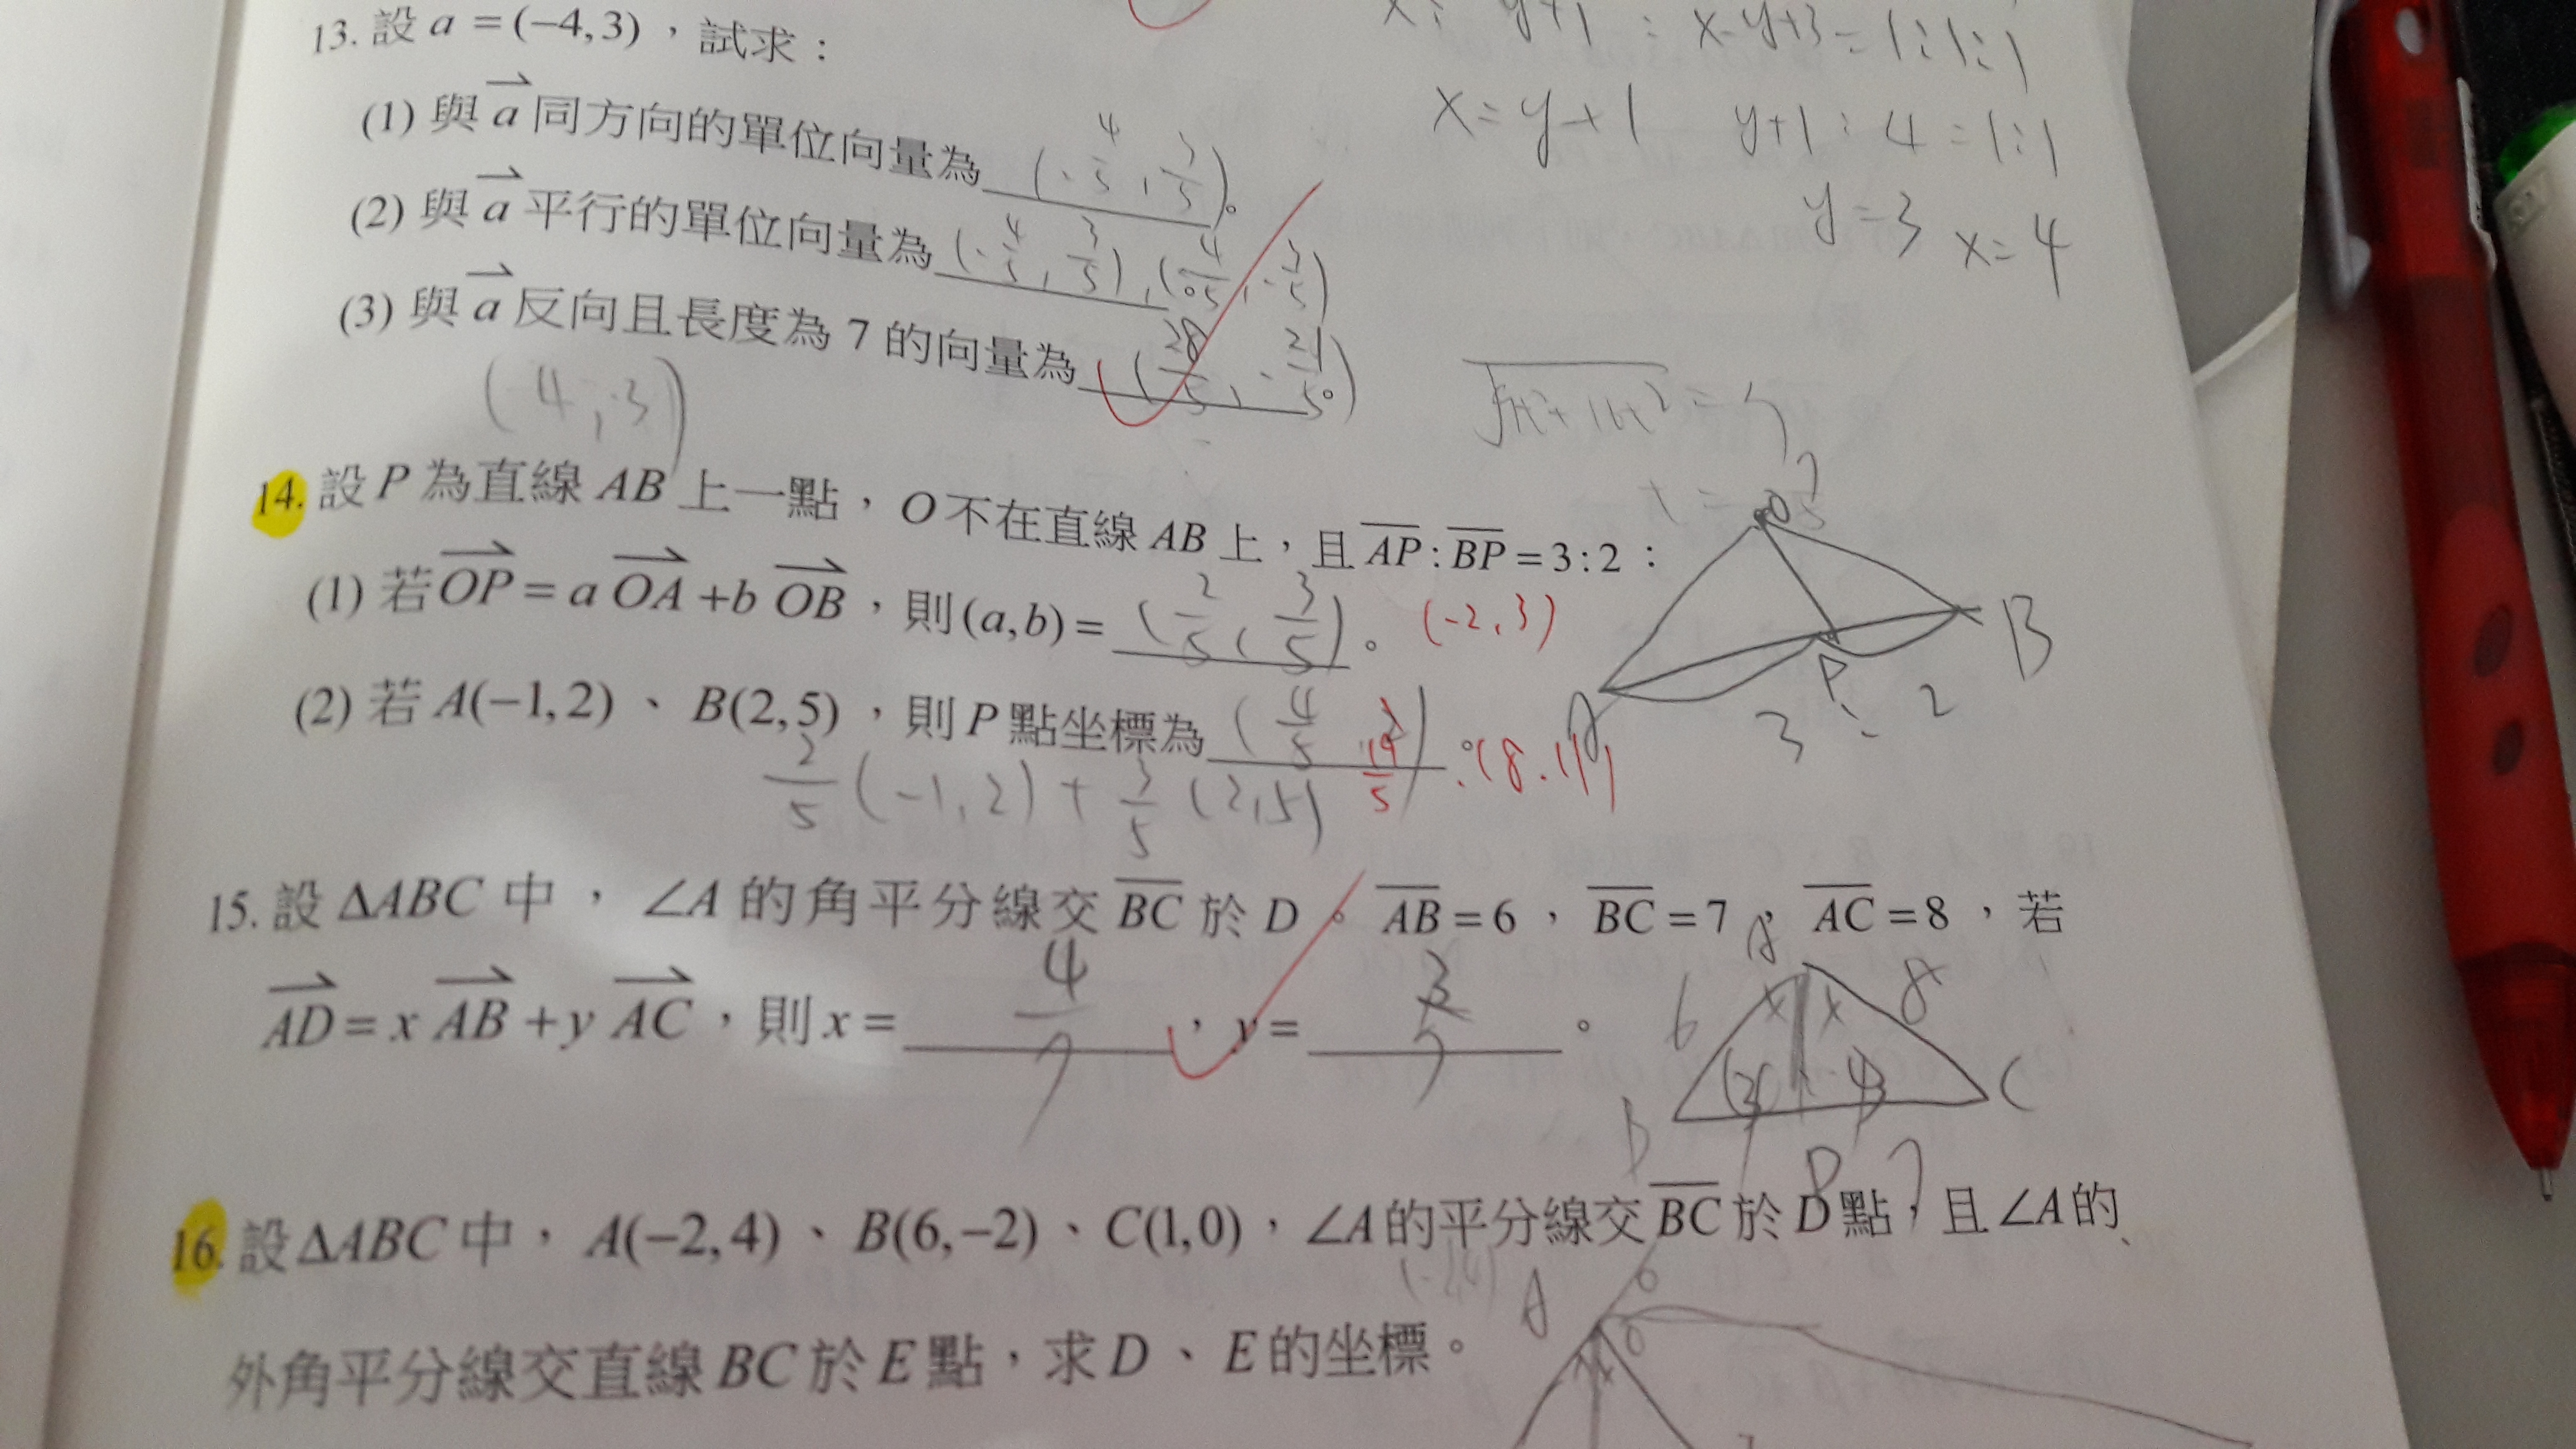 13. 設 a = (−4,3)，試求：
x : y+1 : x-y+3 = 1:1:1
(1) 與 a 同方向的單位向量為 (-4/5, 3/5)。
x = y+1 y+1 : 4 = 1:1
(2) 與 a 平行的單位向量為 (-4/5, 3/5), (4/5, -3/5)。
y = 3 x = 4
(3) 與 a 反向且長度為 7 的向量為 (28/5, -21/5)。
(4,-3)
14. 設 P 為直線 AB 上一點，O 不在直線 AB 上，且 AP : BP = 3 : 2：
(1) 若 OP = a OA + b OB，則 (a,b) = (2/5, 3/5)。 (-2,3)
(2) 若 A(−1,2)、B(2,5)，則 P 點坐標為 (4/5 19/5)。(8.11)
2/5 (-1,2) + 3/5 (2,5)
O
A
P
B
3 : 2
15. 設 ΔABC 中，∠A 的角平分線交 BC 於 D。AB = 6，BC = 7，AC = 8，若
AD = x AB + y AC，則 x = 4/7，y = 3/7。
A
6 8
x x
B C
D 7
16. 設 ΔABC 中，A(−2,4)、B(6,−2)、C(1,0)，∠A 的平分線交 BC 於 D 點，且 ∠A 的
外角平分線交直線 BC 於 E 點，求 D、E 的坐標。
(-2,4) A